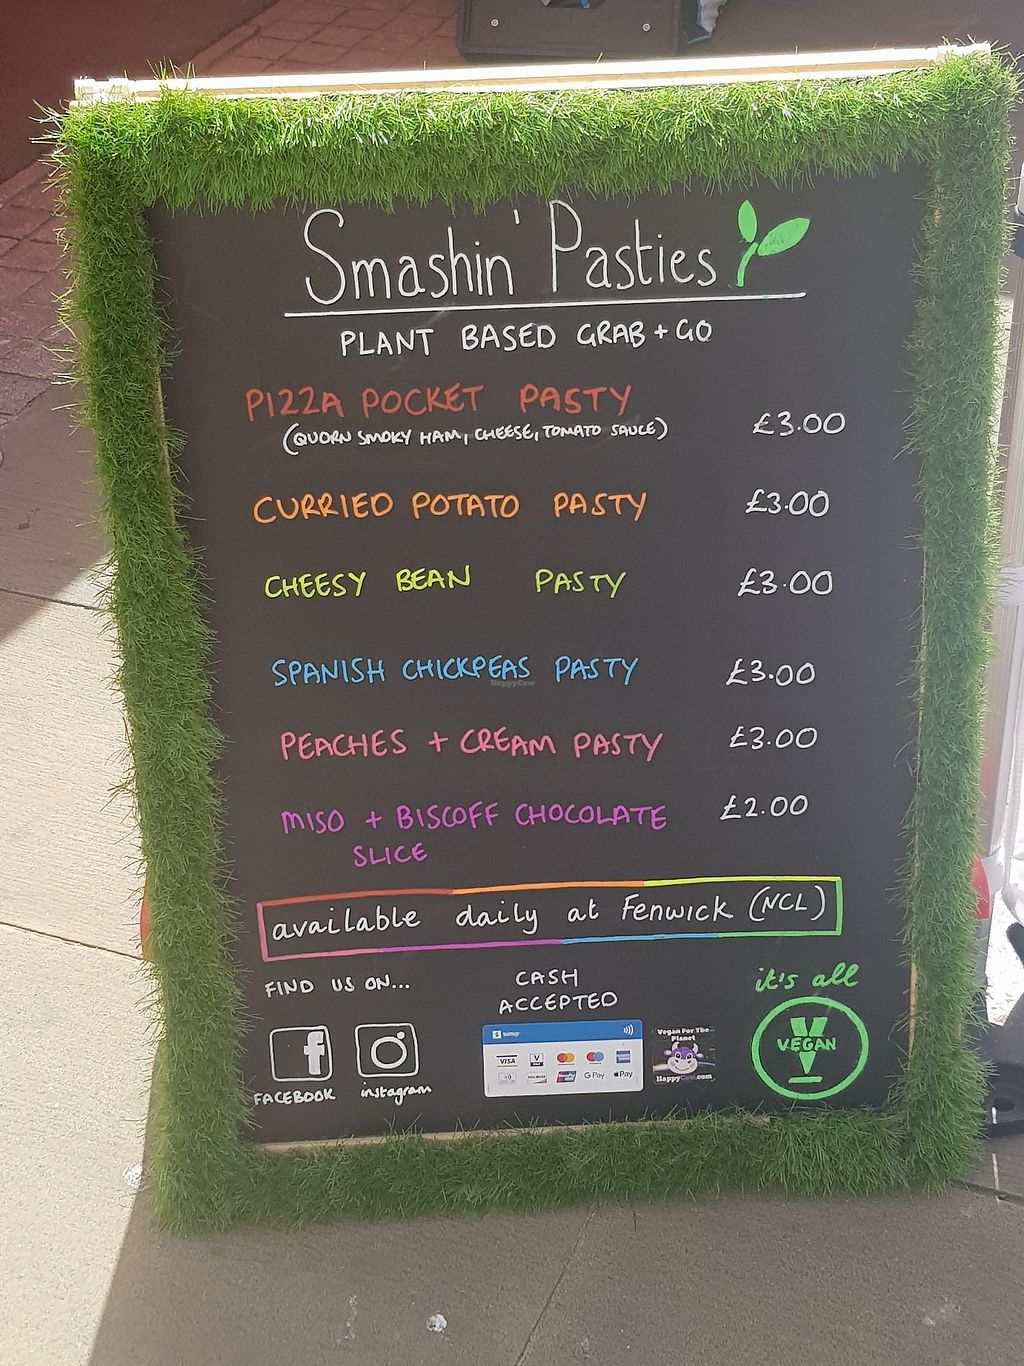 Smashin' Pasties
PLANT BASED GRAB + GO
PIZZA POCKET PASTY
(QUORN SMOKY HAM, CHEESE, TOMATO SAUCE)
£3.00
CURRIED POTATO PASTY £3.00
CHEESY BEAN PASTY £3.00
SPANISH CHICKPEAS PASTY £3.00
HappyCow
PEACHES + CREAM PASTY £3.00
MISO + BISCOFF CHOCOLATE £2.00
SLICE
available daily at Fenwick (NCL)
FIND US ON...
FACEBOOK
instagram
CASH
ACCEPTED
sumup
VISA
DISCOVER
G Pay
Pay
Vegan For The
Planet
HappyCow.com
it's all
VEGAN